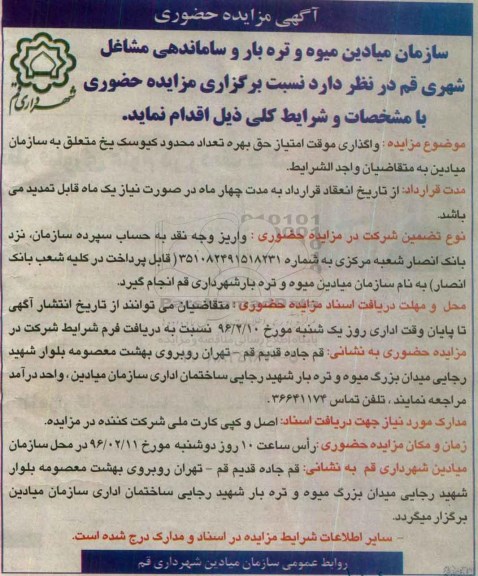 آگهی مزایده حضوری
سازمان میادین میوه و تره بار و ساماندهی مشاغل
شهری قم در نظر دارد نسبت برگزاری مزایده حضوری
با مشخصات و شرایط کلی ذیل اقدام نماید.
شهرداری قم
موضوع مزایده: واگذاری موقت امتیاز حق بهره تعداد محدود کیوسک یخ متعلق به سازمان
میادین به متقاضیان واجد الشرایط.
مدت قرارداد: از تاریخ انعقاد قرارداد به مدت چهار ماه در صورت نیاز یک ماه قابل تمدید می
باشد.
نوع تضمین شرکت در مزایده حضوری : واریز وجه نقد به حساب سپرده سازمان، نزد
بانک انصار شعبه مرکزی به شماره ۳۵۱۰۸۲۴۹۱۵۱۸۲۳۱( قابل پرداخت در کلیه شعب بانک
انصار) به نام سازمان میادین میوه و تره بارشهرداری قم انجام گیرد.
محل و مهلت دریافت اسناد مزایده حضوری : متقاضیان می توانند از تاریخ انتشار آگهی
تا پایان وقت اداری روز یک شنبه مورخ ۹۶/۲/۱۰ نسبت به دریافت فرم شرایط شرکت در
مزایده حضوری به نشانی: قم جاده قدیم قم - تهران روبروی بهشت معصومه بلوار شهید
رجایی میدان بزرگ میوه و تره بار شهید رجایی ساختمان اداری سازمان میادین ، واحد درآمد
مراجعه نمایند ، تلفن تماس ۳۶۶۴۱۱۷۴ .
مدارک مورد نیاز جهت دریافت اسناد: اصل و کپی کارت ملی شرکت کننده در مزایده.
زمان و مکان مزایده حضوری :رأس ساعت ۱۰ روز دوشنبه مورخ ۹۶/۰۲/۱۱ در محل سازمان
میادین شهرداری قم به نشانی: قم جاده قدیم قم - تهران روبروی بهشت معصومه بلوار
شهید رجایی میدان بزرگ میوه و تره بار شهید رجایی ساختمان اداری سازمان میادین
برگزار میگردد.
- سایر اطلاعات شرایط مزایده در اسناد و مدارک درج شده است.
روابط عمومی سازمان میادین شهرداری قم